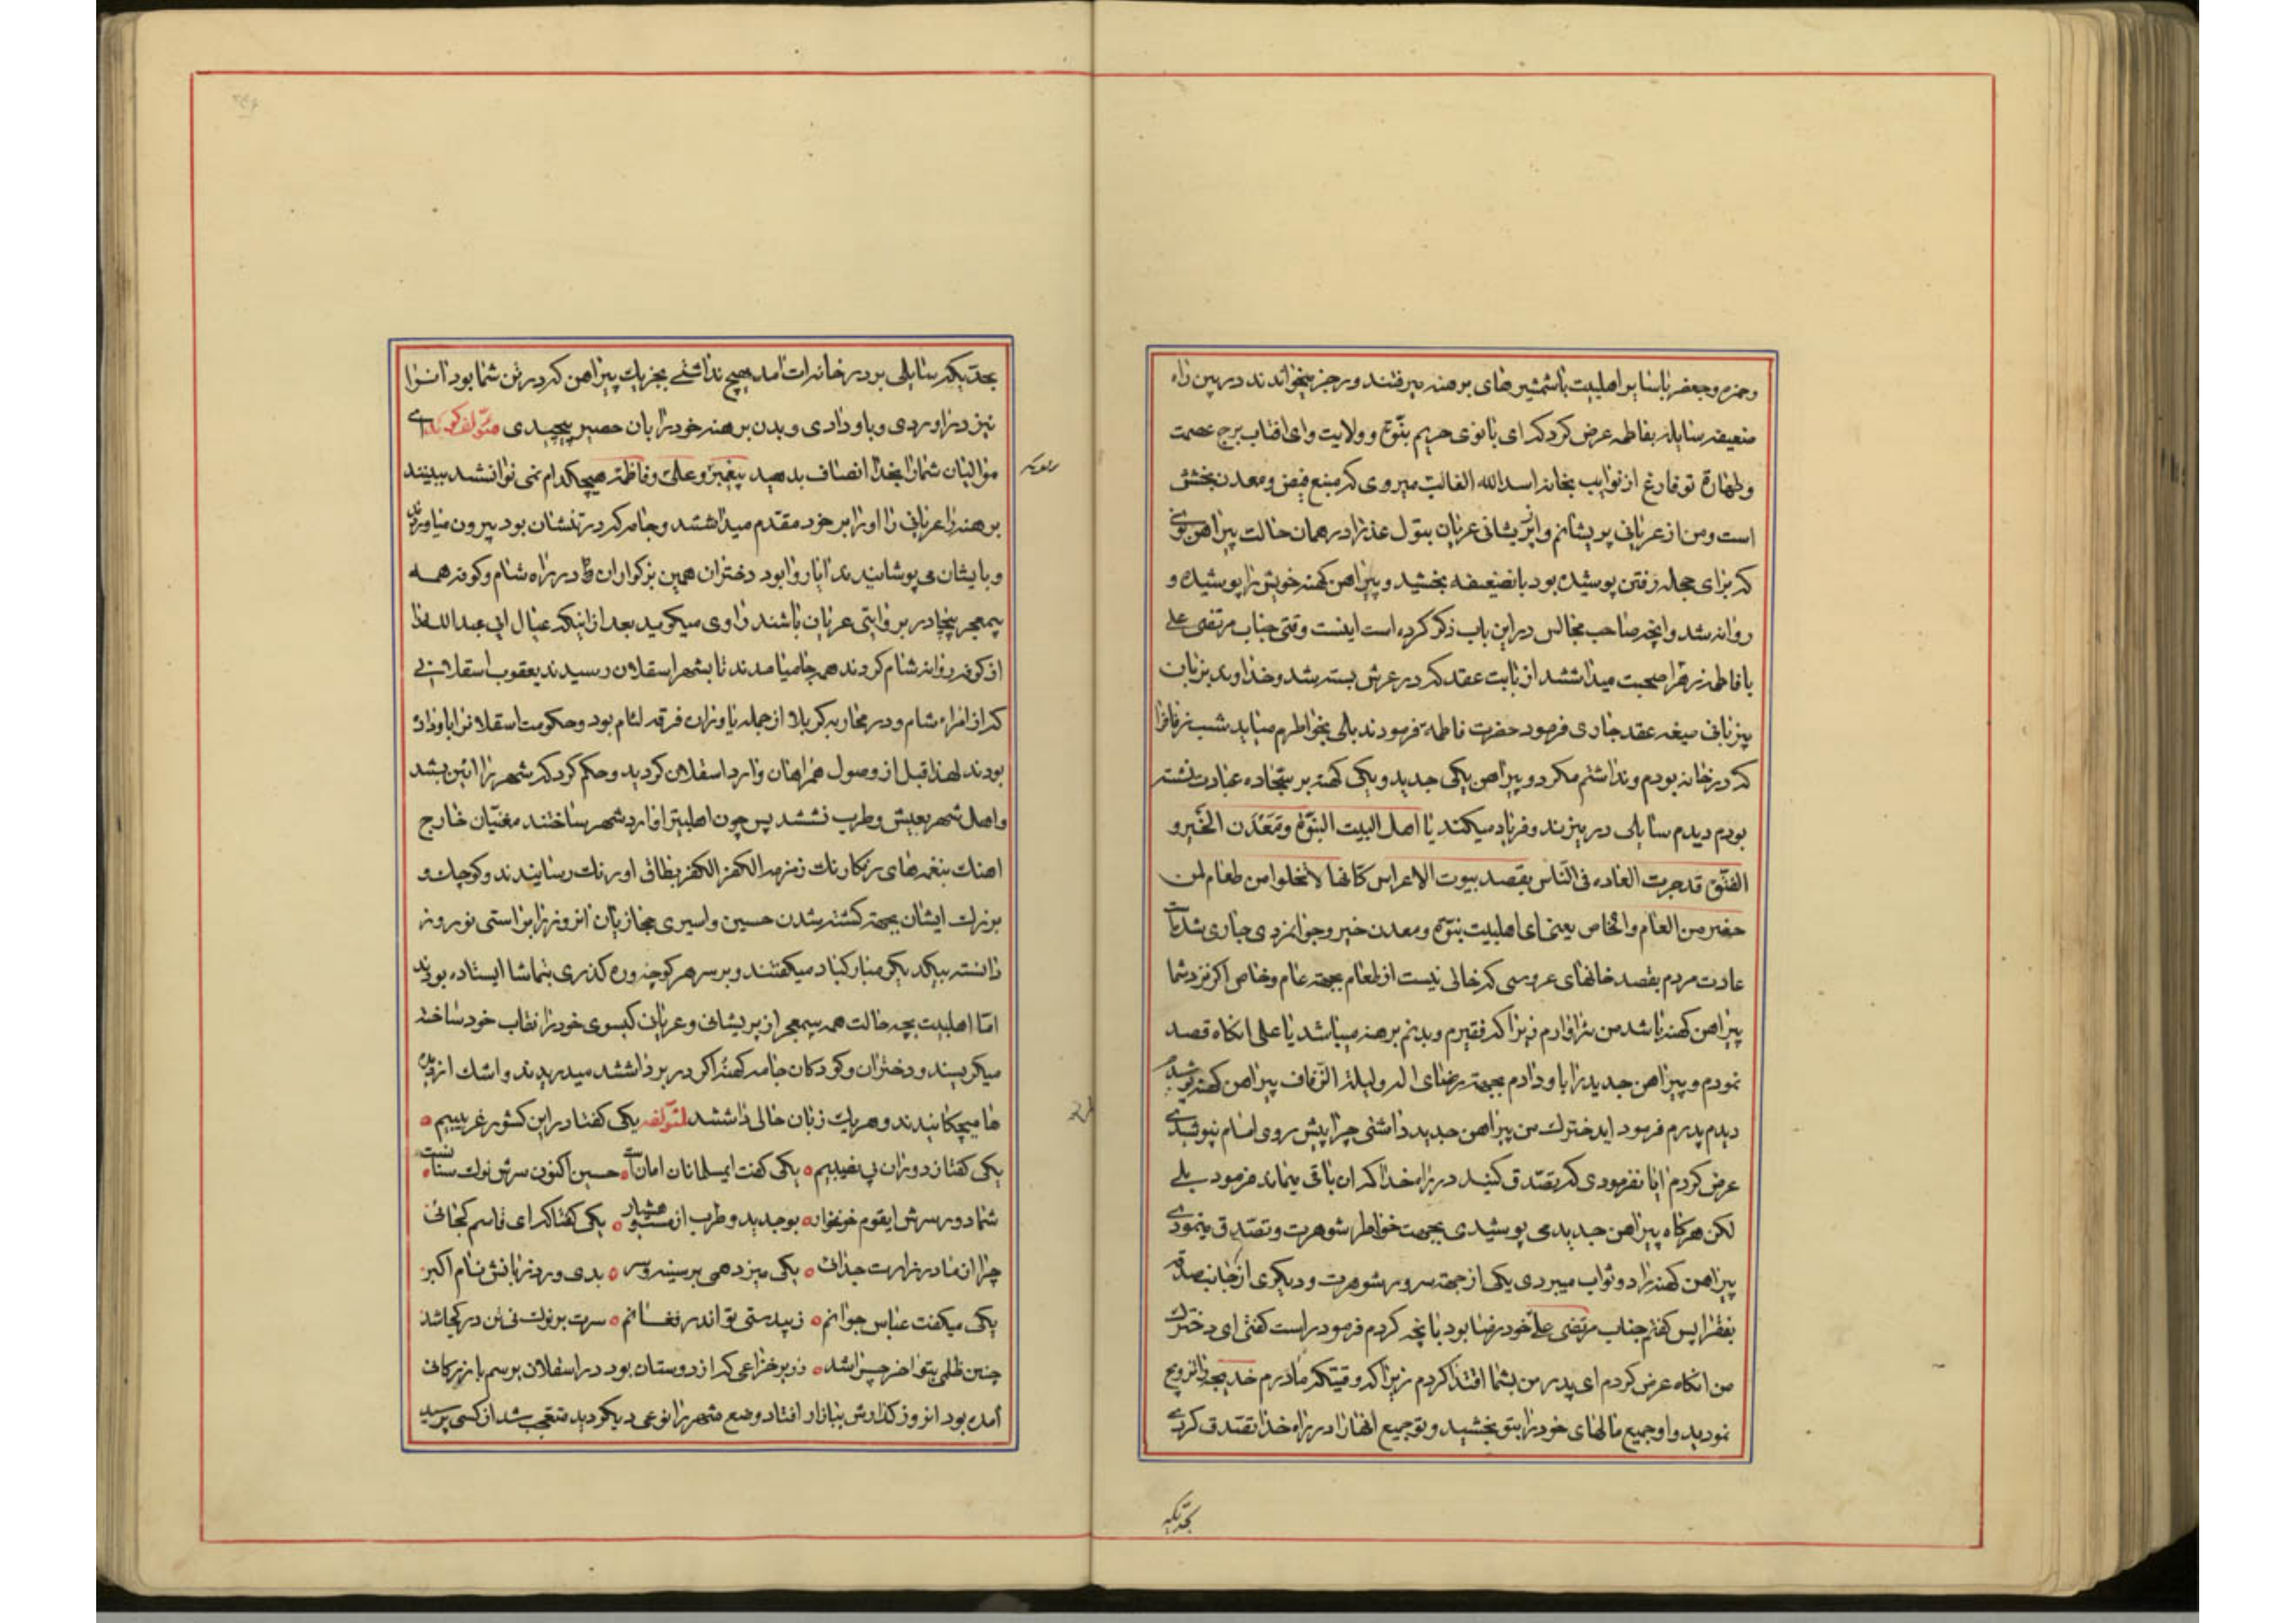 وحمزه وجعفر با سایر اهلبیت با شمشیرهای برهنه میرفتند و رجز میخواندند در بین راه
ضعیفه سایله بفاطمه عرض کرد که ای بانوی حریم نبوّة و ولایت وای افتاب برج عصمت
وطهارة تو فارغ از نوایب بخانه اسد الله الغالب میروی که منبع فیض ومعدن بخشش
است ومن از عریانی پریشانم و عریان بتول عذرا در همان حالت پیراهن نوی
که برای حجله رفتن پوشیده بود بانضعیفه بخشید و پیراهن کهنه خویش را پوشیده و
روانه شد وانچه صاحب مجالس در این باب ذکر کرده است اینست وقتی جناب مرتضی علی
با فاطمه زهرا صحبت میداشتند از بابت عقد که در عرش بسته شد وخداوند بزبان
بیزبانی صیغه عقد جاری فرمود حضرت فاطمه فرمودند بلی بخواطرم میاید شب زفاف را
که در خانه بودم ونداشتم مکر دو پیراهن یکی جدید ویکی کهنه بر سجّاده عبادت نشسته
بودم دیدم سایلی در میزند وفریاد میکند یا اهل البیت النبوّة ومَعْدَن الخَیر و
الفتوّة قد جرت العاده فی النّاس یقصد بیوت الاعراس کانها لاتخلوا من طعام لمن
حضر من العام والخاص یعنی ای اهلبیت نبوّة ومعدن خیر وجوانمردی جاری شده
عادت مردم بقصد خانهای عروسی که خالی نیست از طعام بجهته عام وخاص اکر نزد شما
پیراهن کهنه باشد من سزاوارم زیرا که فقیرم وبدنم برهنه میباشد یا علی انکاه قصد
نمودم و پیراهن جدید را باو دادم بجهته رضای اله و لیلة الزفاف پیراهن کهنه پوشیدم
دیدم پدرم فرمود ایدخترک من پیراهن جدید داشتی چرا پیش روی امام نپوشیدی
عرض کردم ایا نفرمودی که تصّدق کنید در راه خدا که ان باقی بماند فرمود بلی
لکن هرکاه پیراهن جدید می پوشیدی بجهت خواطر شوهرت وتصّدق مینمودی
پیراهن کهنه را دو ثواب میبردی یکی از جهته سرور شوهرت و دیکری از جانب صدقه
بفقرا پس کفتم جناب مرتضی علی خود رضا بود بانچه کردم فرمود راست کفتی ای دخترک
من انکاه عرض کردم ای پدر من بشما اقتدا کردم زیرا که وقتیکه مادرم خدیجه را تزویج
نمودید واو جمیع مالهای خود را بتو بخشید وتو جمیع انها را در راه خدا تصّدق کردی
بحدّیکه
بحدّ یکه سایلی بر در خانه ات امد هیچ نداشتی بجز یک پیراهن که در تن شما بود انرا
نیز دراوردی وباو دادی وبدن برهنه خود را بان حصیر پیچیدی مؤلف کوید ای
موالیان شما را بخدا انصاف بدهید پیغمبر وعلی وفاطمه هیچکدام نمی توانستند ببینند
برهنه را عریانی را او را بر خود مقدم میداشتند وجامه که در تنشان بود بیرون میاوردند
وبایشان می پوشانیدند ایا روا بود دختران همین بزکواران در راه شام وکوفه همه
بیمعجر بیچادر بروایتی عریان باشند راوی میکوید بعد از اینکه عیال ابی عبدالله را
از کوفه روانه شام کردند همه جا میامدند تا بشهر اسقلان رسیدند یعقوب اسقلانی
که از امراء شام ودر محاربه کربلا از جمله یاوران فرقه لئام بود وحکومت اسقلانرا باو داده
بودند لهذا قبل از وصول همراهان وارد اسقلان کردید وحکم کرد که شهر را ائین بستند
واهل شهر بعیش وطرب نشستند پس چون اهلبیترا وارد شهر ساختند مغنیّان خارج
اهنک بنغمه های رنکارنک زمزمه بطاق اورنک رسانیدند وکوچک و
بزرک ایشان بجهته کشته شدن حسین واسیری حجازیان انروز را براستی نوروز
دانسته بیکدیکر مبارکباد میکفتند وبر سر هر کوچه وره کذری بتماشا ایستاده بودند
امّا اهلبیت بچه حالت همه بیمعجر از پریشانی وعریان کیسوی خود را نقاب خود ساخته
میکریستند ودختران وکودکان جامه کهنه را که در بر داشتند میدریدند واشک از دیده
ها میچکانیدند وهر یک زبان حالی داشتند لمؤلفه یکی کفتا در این کشور غریبیم ه
یکی کفتا ز دوران بی نصیبیم ه یکی کفت ایمسلمانان امانست ه حسین اکنون سرش نوک سنانست ه
شما دور سرش ایقوم خونخوار ه بوجدید وطرب از مست وهشیار ه یکی کفتا که ای قاسم کجائی
چرا از مادر زارت جدائی ه یکی میزد همی بر سینه وسر ه بدی ورد زبانش نام اکبر
یکی میکفت عباس جوانم ه ز بیدستی تو اندر فغانم ه سرت بر نوک نی تن در کجا شد
چنین ظلمی بتو اخر چرا شد ه زریر خزاعی که از دوستان بود در اسقلان برسم بازرکانی
آمده بود انروز کذارش ببازار افتاد وضع شهر را نوعی دیکر دید متعجب شد از کسی پرسید